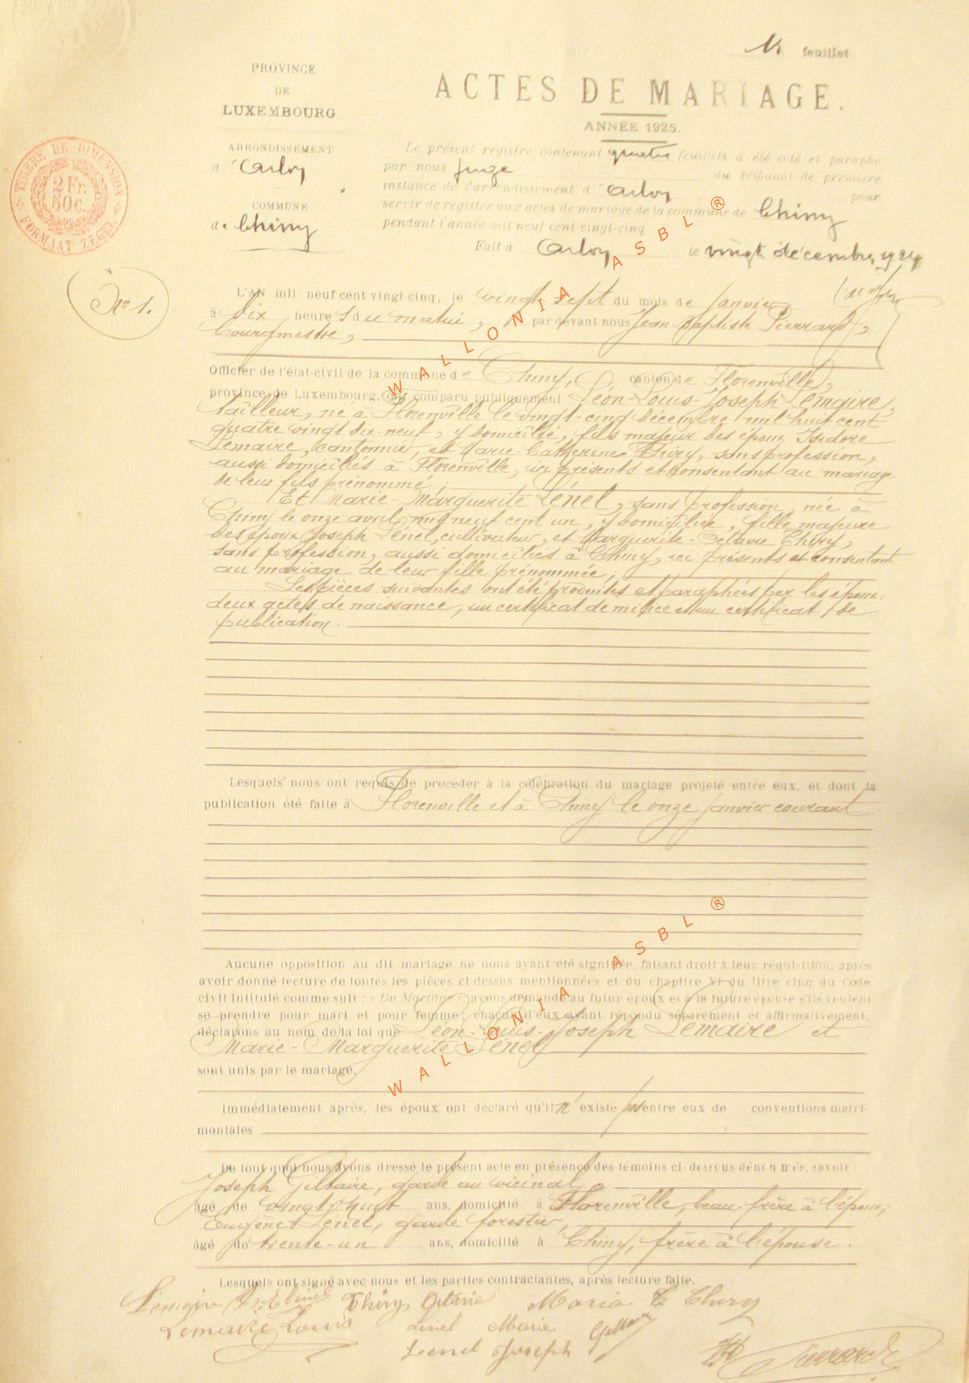 feuillet
PROVINCE
DE
LUXEMBOURG.
ACTES DE MARIAGE.
ANNÉE 1925.
ARRONDISSEMENT
d'Arlon
COMMUNE
de Chiny
TIMBRE DE DIMENSION
2 Fr.
60c.
FORMAAT ZEGEL
Le présent registre contenant quatre feuillets a été coté et paraphé
par nous Juge du tribunal de première
instance de l'arrondissement d'Arlon pour
servir de registre aux actes de mariage de la commune de Chiny
pendant l'année mil neuf cent vingt-cinq
Fait à Arlon le vingt décembre 1924
No 1.
L'AN mil neuf cent vingt-cinq, le vingt-sept du mois de Janvier,
à dix heures du matin, par devant nous Jean-Baptiste Pierrard,
bourgmestre,
Officier de l'état-civil de la commune de Chiny, canton de Florenville,
province de Luxembourg, ont comparu publiquement Léon-Louis-Joseph Lemaire,
tailleur, né à Florenville le vingt-cinq décembre mil huit cent
quatre vingt dix-neuf, y domicilié, fils majeur des époux Isidore
Lemaire, cantonnier, et Marie Catherine Thiry, sans profession,
aussi domiciliés à Florenville, ici présents et consentant au mariage
de leur fils prénommé,
Et Marie-Marguerite Lenel, sans profession, née à
Chiny le onze avril mil neuf cent un, y domiciliée, fille majeure
des époux Joseph Lenel, cultivateur, et Marguerite-Octavie Thiry,
sans profession, aussi domiciliés à Chiny, ici présents et consentant
au mariage de leur fille prénommée,
Les pièces suivantes ont été produites et paraphées par les époux:
deux actes de naissance, un certificat de milice et un certificat de
publication.
Lesquels nous ont requis de procéder à la célébration du mariage projeté entre eux, et dont la
publication été faite à Florenville et à Chiny le onze janvier courant
Aucune opposition au dit mariage ne nous ayant été signifiée, faisant droit à leur réquisition, après
avoir donné lecture de toutes les pièces ci-dessus mentionnées et du chapitre VI du titre cinq du Code
civil intitulé comme suit : « Du Mariage » avons demandé au futur époux et à la future épouse s'ils veulent
se prendre pour mari et pour femme; chacun d'eux ayant répondu séparément et affirmativement,
déclarons au nom de la loi que Léon-Louis-Joseph Lemaire et
Marie-Marguerite Lenel
sont unis par le mariage.
Immédiatement après, les époux ont déclaré qu'il n'existe pas entre eux de conventions matri-
moniales
De tout quoi nous avons dressé le présent acte en présence des témoins ci-dessous dénommés, savoir :
Joseph Gillaire, garde au vicinal,
âgé de vingt-huit ans, domicilié à Florenville, beau-frère à l'époux;
Eugène Lenel, garde forestier,
âgé de trente-un ans, domicilié à Chiny, frère à l'épouse.
Lesquels ont signé avec nous et les parties contractantes, après lecture faite.
Lemaire Thiry Octavie Maria C Thiry
Lemaire Louis Lenel Marie
Lenel Joseph Pierrard
WALLONIA ASBL ®
WALLONIA ASBL ®